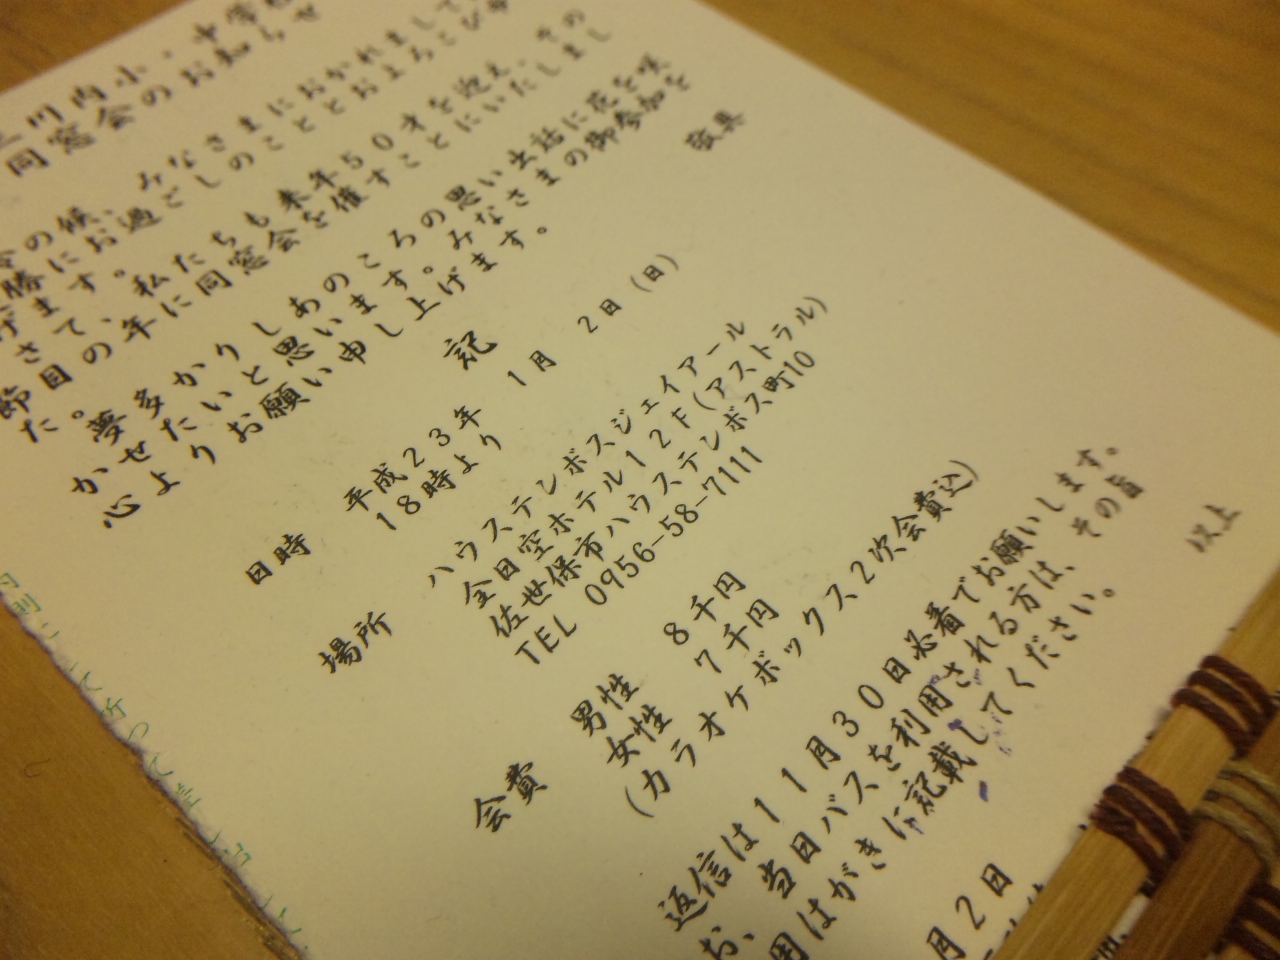 三川内小・中学校
同窓会のお知らせ
の候、みなさまにおかれまして
勝にお過ごしのこととおよろこび申
げます。
さて、私たちも来年50才を迎え、その
節目の年に同窓会を催すことにいたしまし
た。
夢多かりしあのころの思い出話に花を咲
かせたいと思います。みなさまの御参加を
心よりお願い申し上げます。
敬具
記
日時 平成23年 1月 2日(日)
18時より
場所 ハウステンボスジェイアール
全日空ホテル12F(アストラル)
佐世保市ハウステンボス町10
TEL 0956-58-7111
会費 男性 8千円
女性 7千円
(カラオケボックス2次会費込)
返信は11月30日必着でお願いします。
お、当日バスを利用される方は、その旨
用はがきに記載してください。
以上
月2日